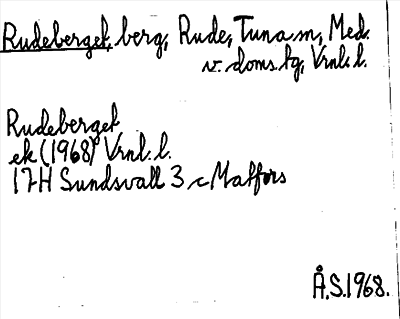 Rudeberget, berg, Rude, Tuna sn, Med.
v. doms. tg, Vrnl. l.
Rudeberget
ek (1968) Vrnl. l.
17H Sundsvall 3 c Matfors
Å.S. 1968.